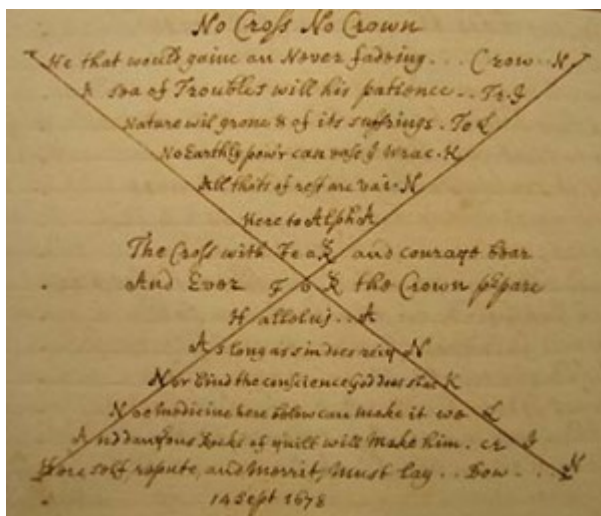 No Cross No Crown
He that would gaine an Never fadeing... Crow.. N
A sea of Troubles will his patience.. Tr. I
Nature wil grone & of its suffrings. To L
No Earthly pow'r can ease ye wrac. K
All thats of rest are vai. N
Here to Alpha A
The Cross with Fea R and courage bear
And Ever F o R the Crown prepare
Halleluj.. A
As long as sin dees reig N
Nor bind the conscience God does slac K
Noe medicine here below can make it we L
And dang'ous Rocks of guilt will Make him. cr I
Here self, repute, and Merrit, Must lay.. Dow... N
14 Sept 1678